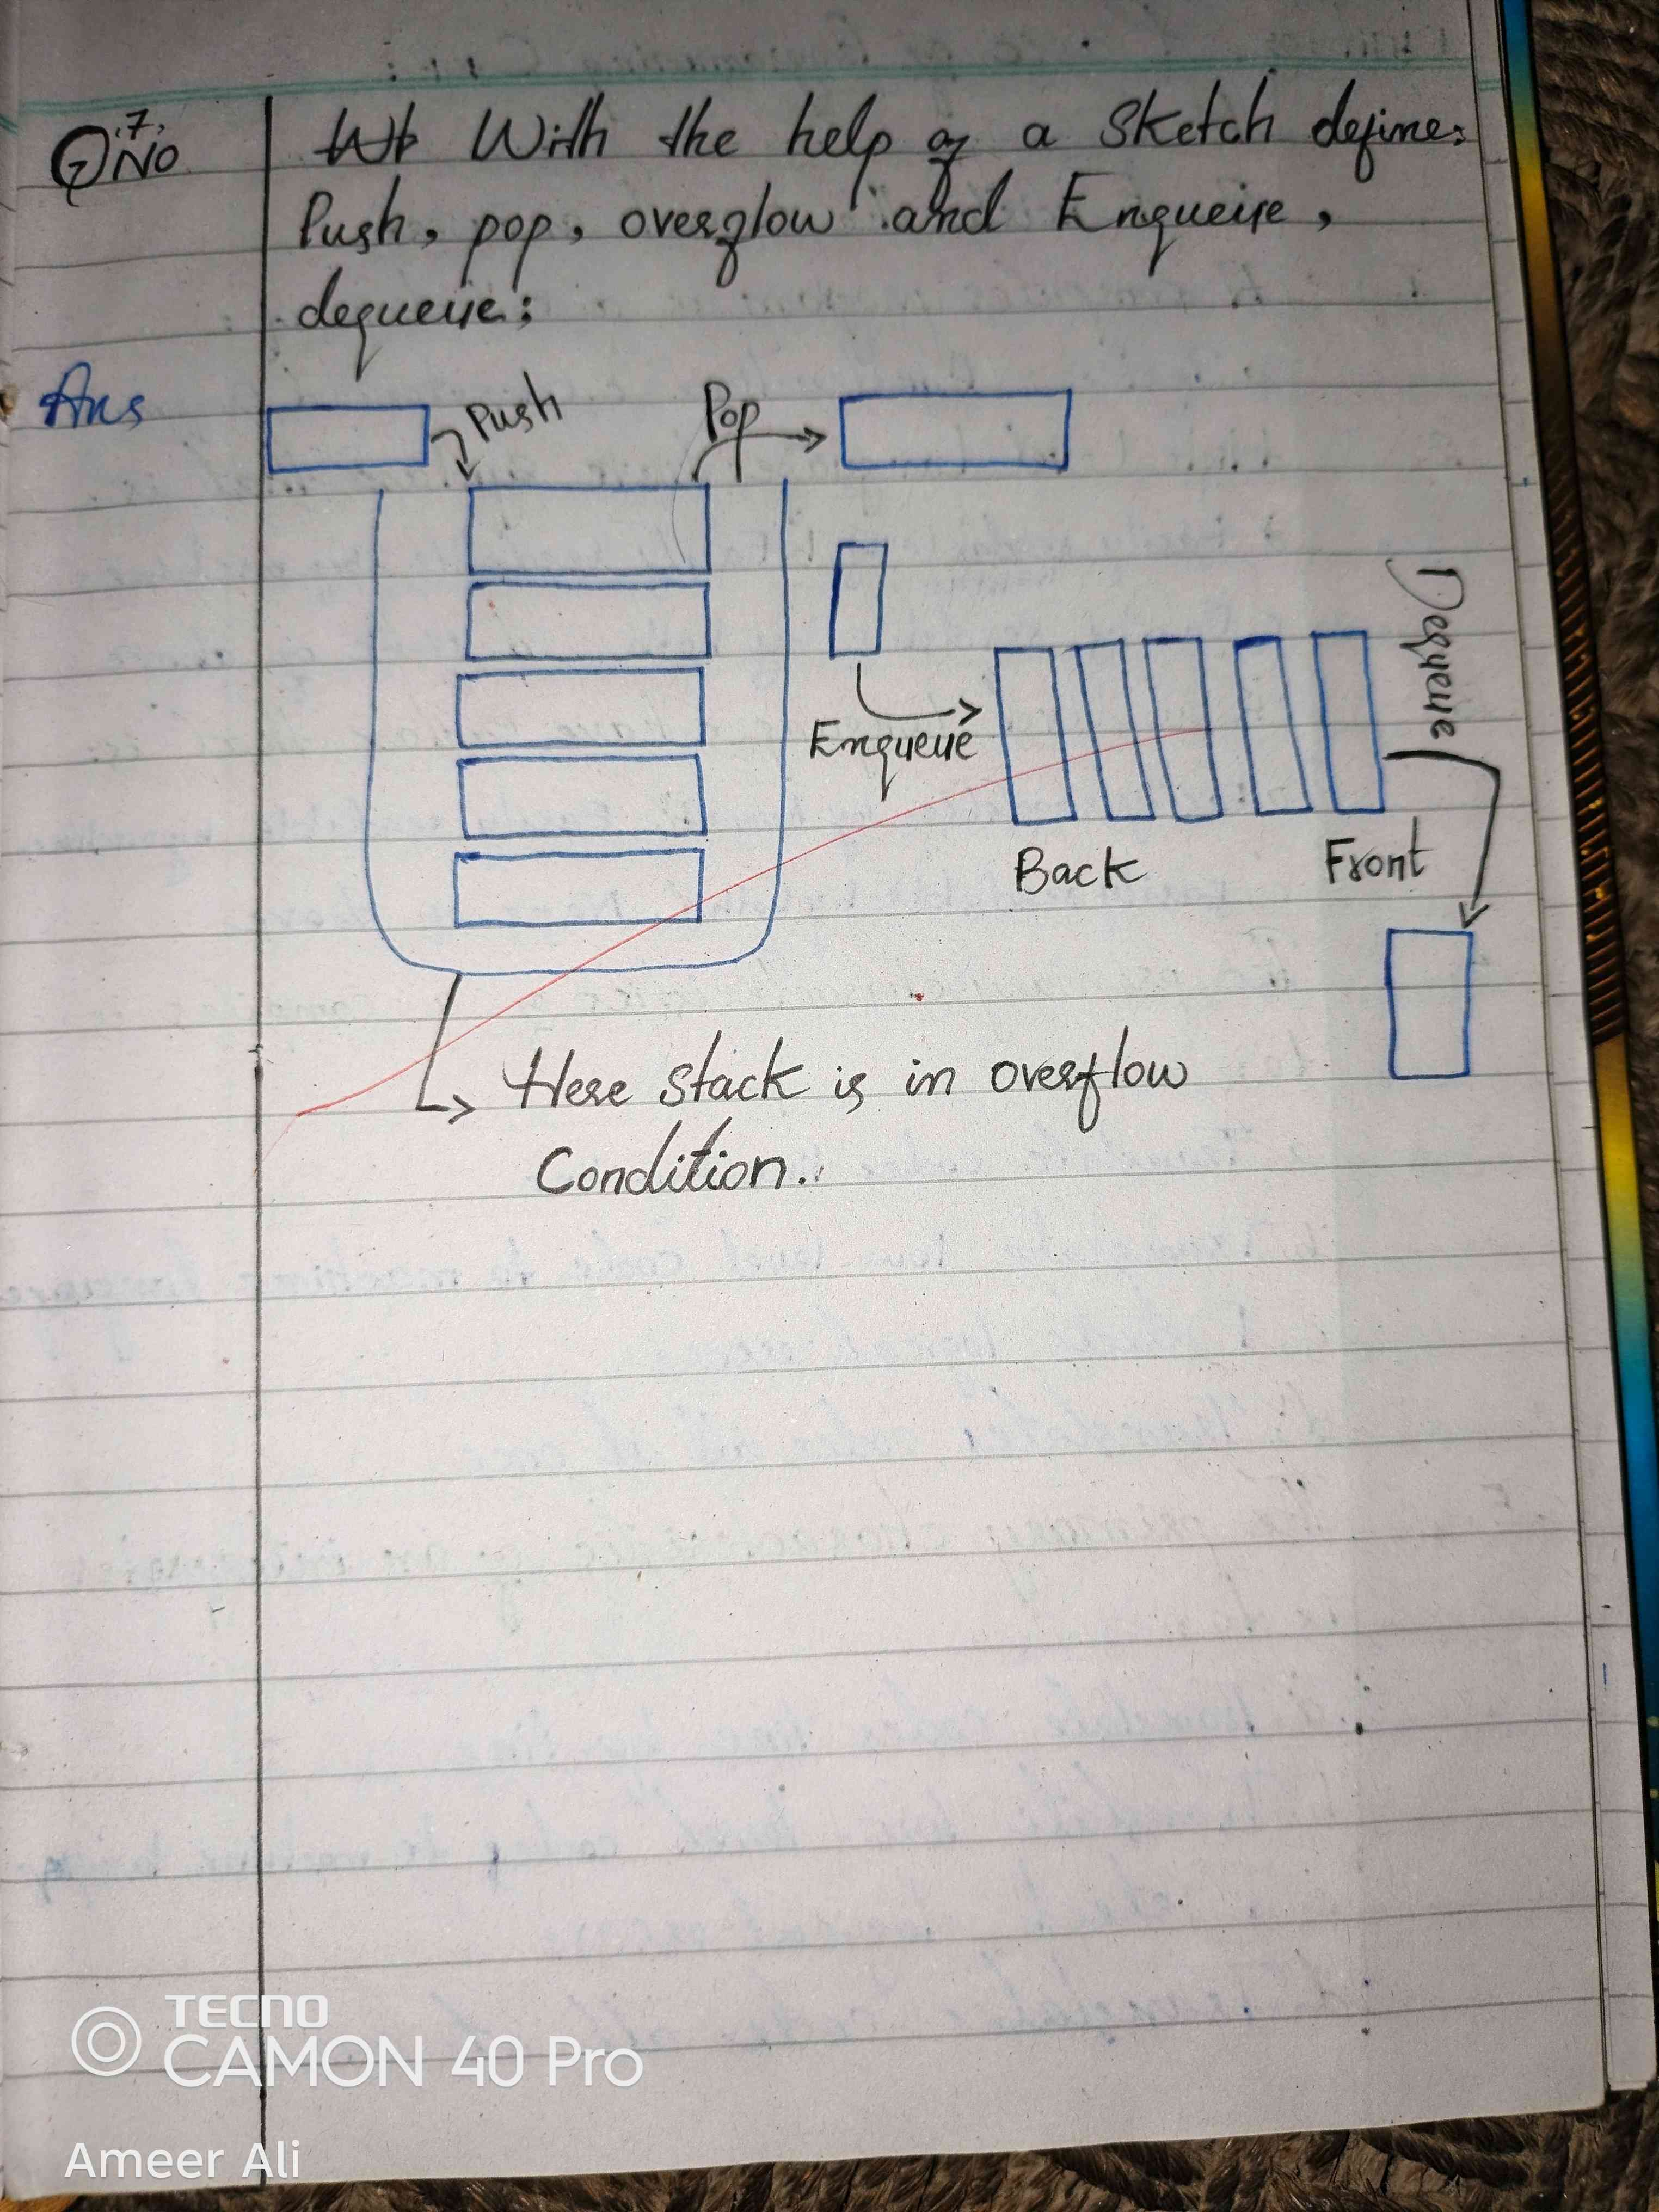 Q NO .7,
With the help of a Sketch define:
Push, pop, overflow and Enqueue,
dequeue:
Ans
Push
Pop
Dequeue
Enqueue
Back
Front
Here stack is in overflow
Condition.
TECNO
CAMON 40 Pro
Ameer Ali